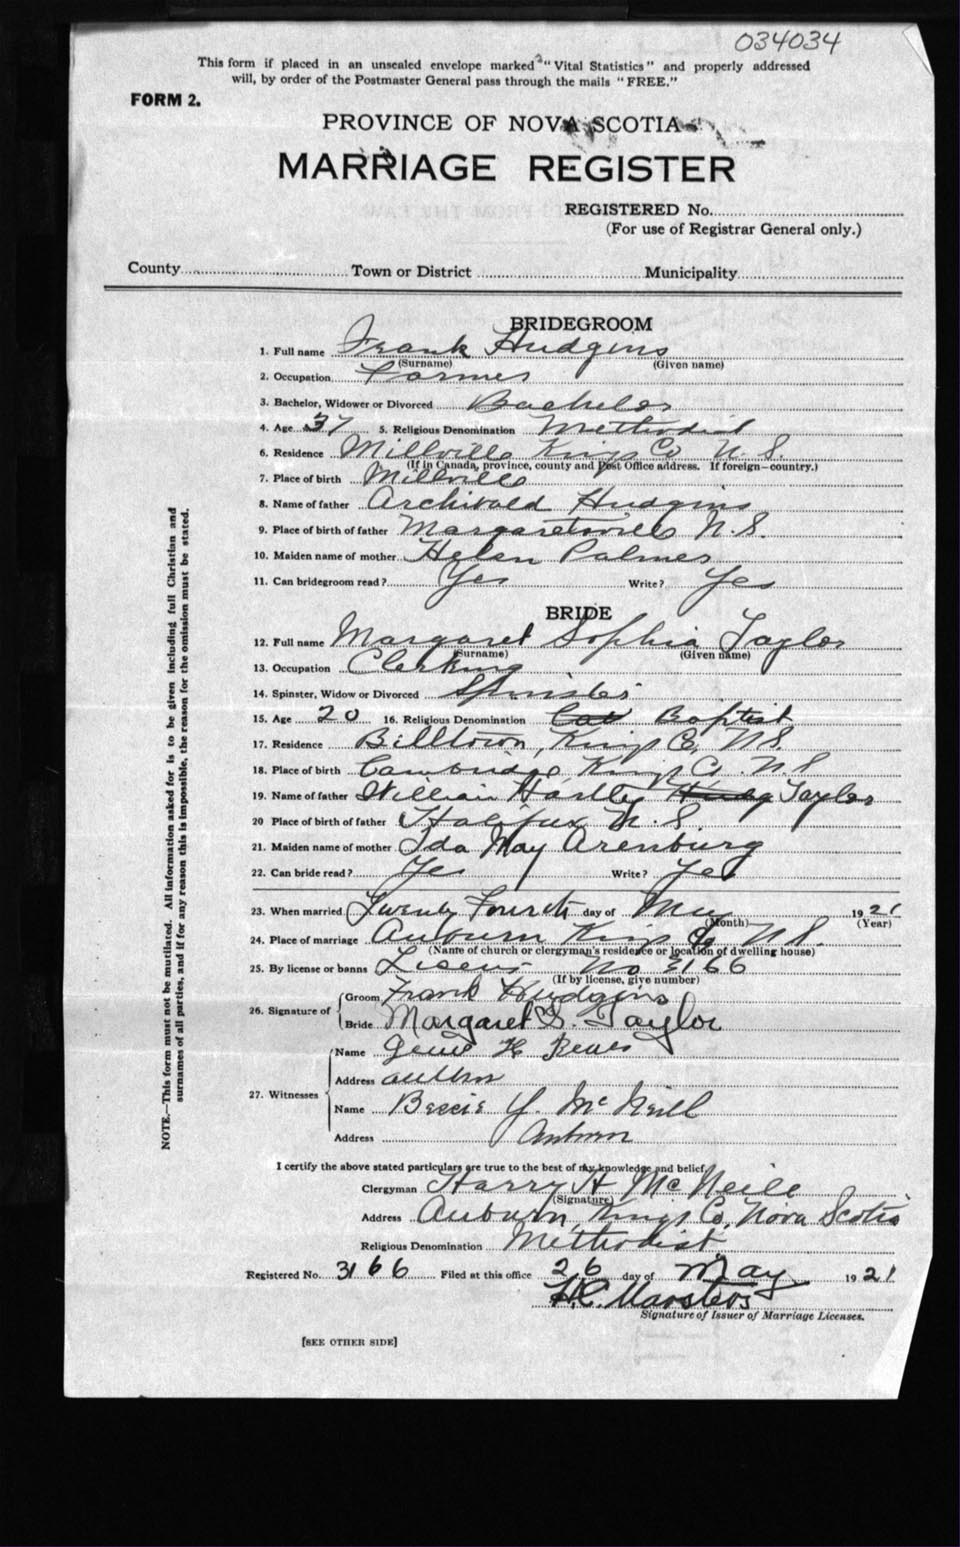 034034
This form if placed in an unsealed envelope marked "Vital Statistics" and properly addressed
will, by order of the Postmaster General pass through the mails "FREE."
FORM 2.
PROVINCE OF NOVA SCOTIA
MARRIAGE REGISTER
REGISTERED No.
(For use of Registrar General only.)
County Town or District Municipality
BRIDEGROOM
1. Full name Frank Hudgins
(Surname) (Given name)
2. Occupation Farmer
3. Bachelor, Widower or Divorced Bachelor
4. Age 37 5. Religious Denomination Methodist
6. Residence Millville Kings Co N. S.
(If in Canada, province, county and Post Office address. If foreign—country.)
7. Place of birth Millville
8. Name of father Archibald Hudgins
9. Place of birth of father Margaretville N. S.
10. Maiden name of mother Helen Palmer
11. Can bridegroom read? Yes Write? Yes
BRIDE
12. Full name Margaret Sophia Taylor
(Surname) (Given name)
13. Occupation Clerking
14. Spinster, Widow or Divorced Spinster
15. Age 20 16. Religious Denomination Baptist
17. Residence Billtown, Kings Co, N.S.
18. Place of birth Cambridge Kings Co. N.S
19. Name of father William Hartley Taylor
20 Place of birth of father Halifax N. S.
21. Maiden name of mother Ida May Arenburg
22. Can bride read? Yes Write? Yes
23. When married Twenty Fourth day of May 1921
(Month) (Year)
24. Place of marriage Auburn Kings Co N.S.
(Name of church or clergyman's residence or location of dwelling house)
25. By license or banns No 3166
(If by license, give number)
26. Signature of Groom Frank Hudgins
Bride Margaret S. Taylor
27. Witnesses
Name H
Address
Name Bessie Y. McNeill
Address Auburn
I certify the above stated particulars are true to the best of my knowledge and belief.
Clergyman Harry H McNeill
(Signature)
Address Auburn, Kings Co, Nova Scotia
Religious Denomination Methodist
Registered No. 3166 Filed at this office 26 day of May 1921
H.C. Marsters
Signature of Issuer of Marriage Licenses.
[SEE OTHER SIDE]
NOTE.—This form must not be mutilated. All information asked for is to be given including full Christian and
surnames of all parties, and if for any reason this is impossible, the reason for the omission must be stated.